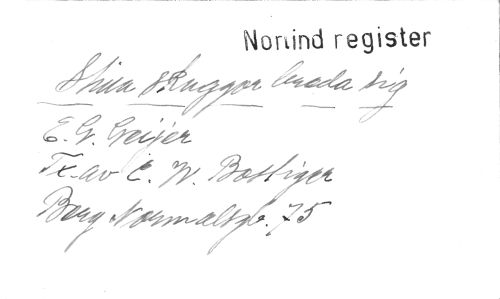 Nonind register
Shua skuggor breda sig
E. G. Geijer
Tx. av C. W. Bottiger
Berg Normalsgb. 75